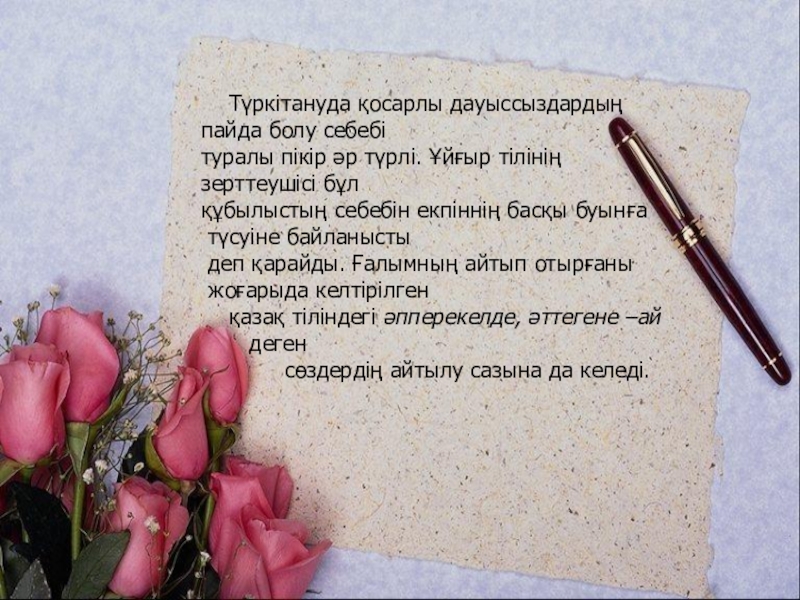 Түркітануда қосарлы дауыссыздардың
пайда болу себебі
туралы пікір әр түрлі. Ұйғыр тілінің
зерттеушісі бұл
құбылыстың себебін екпіннің басқы буынға
түсуіне байланысты
деп қарайды. Ғалымның айтып отырғаны
жоғарыда келтірілген
қазақ тіліндегі әпперекелде, әттегене –ай
деген
сөздердің айтылу сазына да келеді.